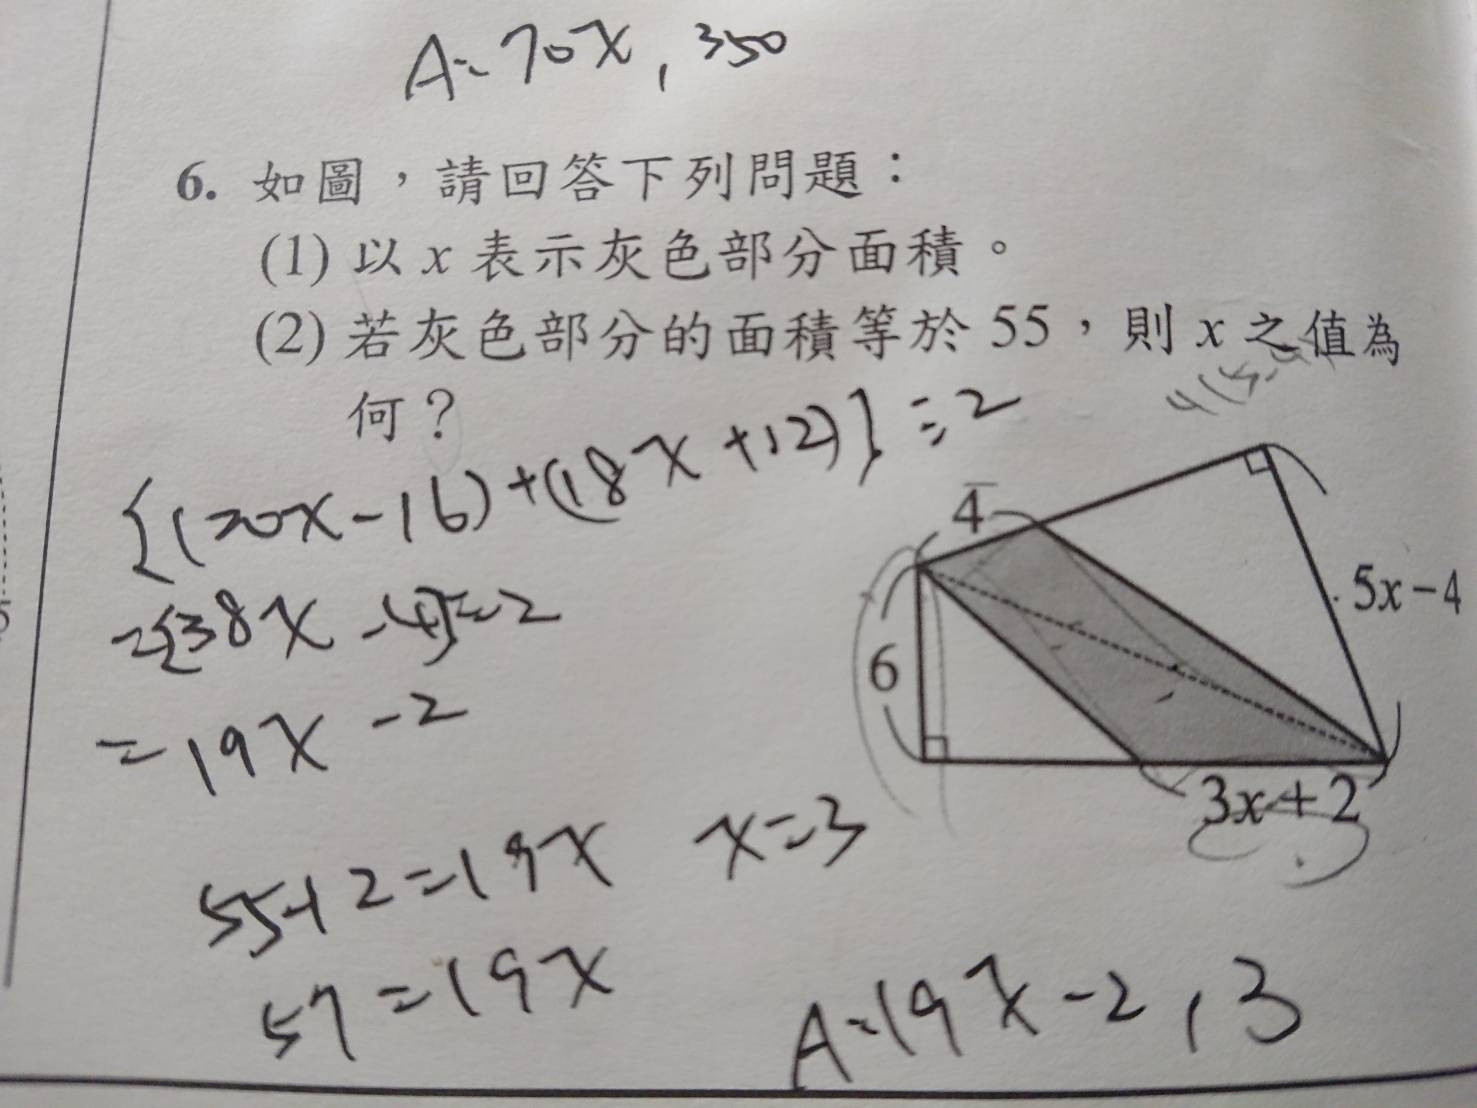 A:70x,350
6. 如圖，請回答下列問題：
(1) 以 x 表示灰色部分面積。
(2) 若灰色部分的面積等於 55，則 x 之值為
何？
{(20x-16)+(18x+12)}÷2
={38x-4}÷2
=19x-2
55+2=19x x=3
57=19x
A:19x-2,3
4
5x-4
6
3x+2